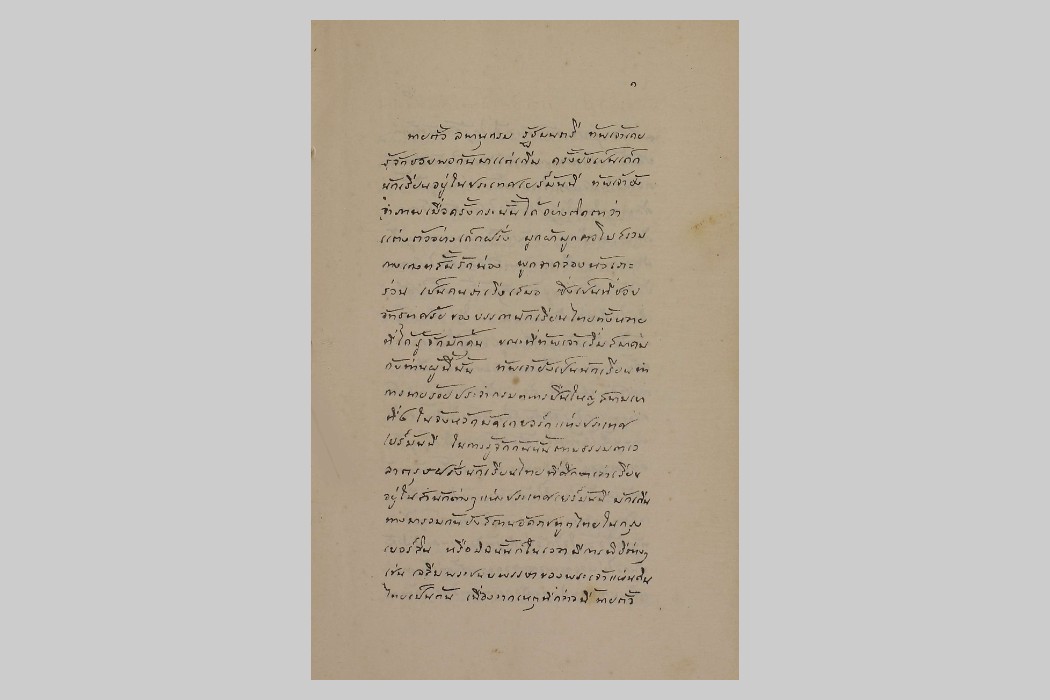 ๑
นายตั้ว ลพานุกรม รัฐมนตรี ข้าพเจ้าเคย
รู้จักชอบพอกันมาแต่เดิม ครั้งยังเป็นเด็ก
นักเรียนอยู่ในประเทศเยอร์มันนี ข้าพเจ้ายัง
จำภาพเมื่อครั้งกระนั้นได้อย่างติดตาว่า
แต่งตัวอย่างเด็กฝรั่ง ผูกผ้าผูกคอโบสวม
กางเกงขาสั้นรัดน่อง พูดจาคล่องหัวเราะ
ร่วน เป็นคนร่าเริงเสมอ ซึ่งเป็นที่ชอบ
อัทธยาศรัยของบรรดานักเรียนไทยทั้งหลาย
ที่ได้รู้จักมักคุ้น ขณะที่ข้าพเจ้าเริ่มสมาคม
กับท่านผู้นี้นั้น ข้าพเจ้ายังเป็นนักเรียนทำ
การนายร้อยประจำกรมทหารปืนใหญ่สนามเท
ที่ ๔ ในจังหวัดมัคเดบอร์ก แห่งประเทศ
เยอร์มันนี ในการรู้จักกันนั้นตามธรรมดาเว
ลาตรุษฝรั่งนักเรียนไทยที่ศึกษาเล่าเรียน
อยู่ในสำนักต่างๆ แห่งประเทศเยอร์มันนี มักเดิน
ทางมารวมกันยังสถานอัครราชทูตไทยในกรุง
เบอร์ลิน หรือมิฉนั้นก็ในเวลามีการพิธีต่างๆ
เช่น เฉลิมพระชนมพรรษาของพระเจ้าแผ่นดิน
ไทยเป็นต้น เนื่องจากเหตุที่กล่าวนี้ นายตั้ว